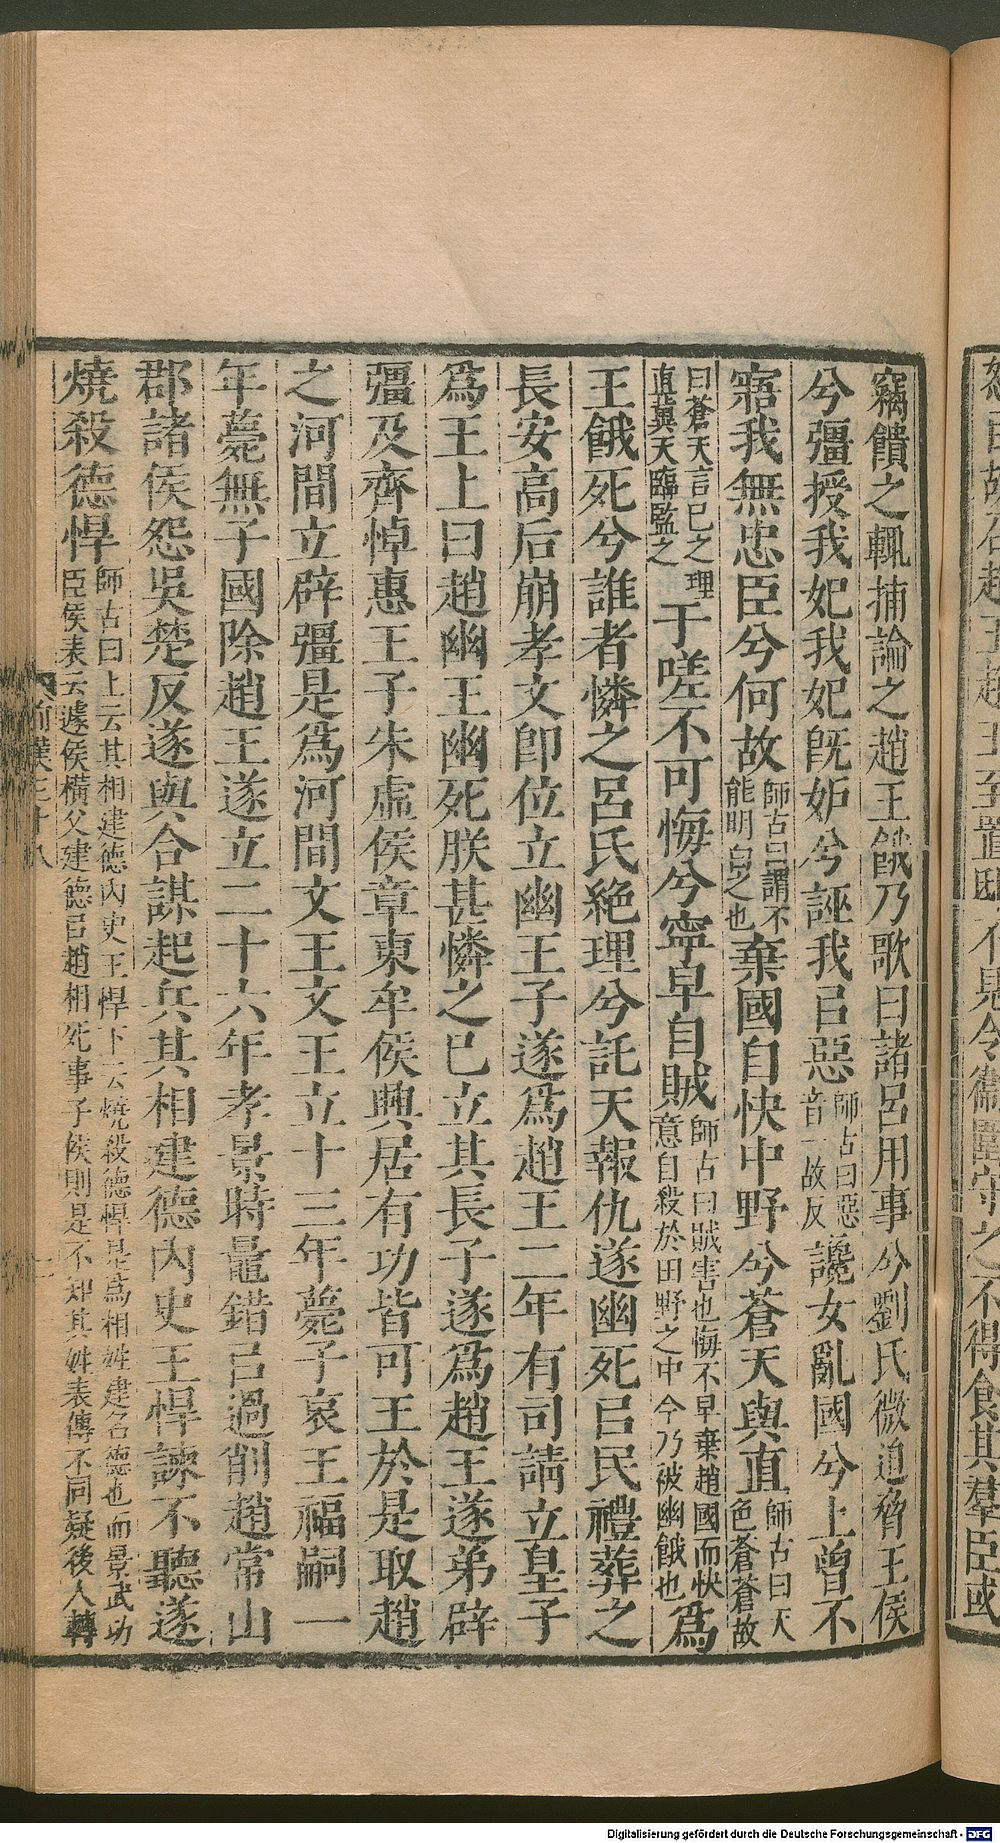 怒呂故召趙王趙王至置邸不見令衞圍守之不得食其羣臣或
竊饋之輒捕論之趙王餓乃歌曰諸呂用事兮劉氏微迫脅王侯
兮彊授我妃我妃旣妒兮誣我㠯惡師古曰惡音一故反讒女亂國兮上曾不
寤我無忠臣兮何故師古曰謂不能明白之也棄國自快中野兮蒼天與直師古曰天色蒼蒼故
曰蒼天言已之理直冀天臨監之于嗟不可悔兮寧早自賊師古曰賊害也悔不早棄趙國而快意自殺於田野之中今乃被幽餓也爲
王餓死兮誰者憐之呂氏絶理兮託天報仇遂幽死㠯民禮葬之
長安高后崩孝文卽位立幽王子遂爲趙王二年有司請立皇子
爲王上曰趙幽王幽死朕甚憐之已立其長子遂爲趙王遂弟辟
彊及齊悼惠王子朱虛侯章東牟侯興居有功皆可王於是取趙
之河間立辟彊是爲河間文王文王立十三年薨子哀王福嗣一
年薨無子國除趙王遂立二十六年孝景時鼂錯㠯過削趙常山
郡諸侯怨吳楚反遂與合謀起兵其相建德內史王悍諫不聽遂
燒殺德悍師古曰上云其相建德內史王悍下云燒殺德悍是爲相姓建名德也而景武功臣侯表云遽侯橫父建德㠯趙相死事子侯則是不知其姓表傳不同疑後人轉
前漢三十八
Digitalisierung gefördert durch die Deutsche Forschungsgemeinschaft - DFG